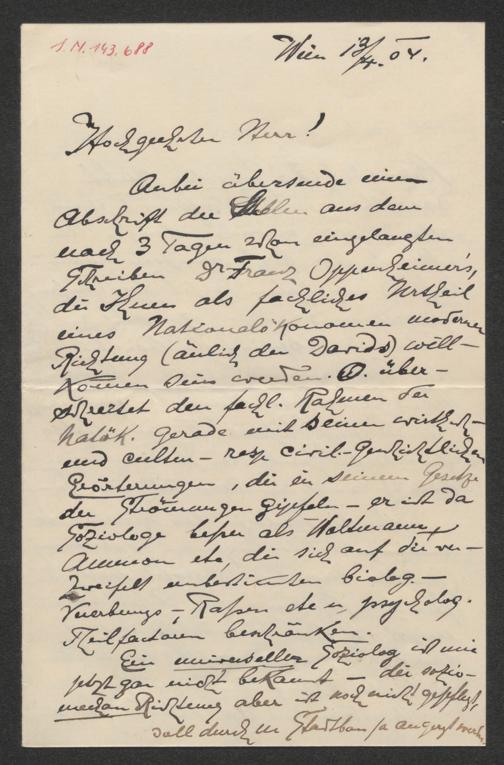 I.N. 143.688
Wien 13/4. 04.
Hochgeehrter Herr!
Anbei übersende einen
Abschrift der Stellen aus dem
nach 3 Tagen schon eingelangten
Schreiben Dr Franz Oppenheimer's,
die Ihnen als fachliches Urtheil
eines Nationalökonomen moderner
Richtung (änlich der Davids) will-
komen sein werden. O. über-
schreitet den fachl. Rahmen der
Natök. gerade mit seinen wirthsch-
und cultur- resp civil.-geschichtlichen
Erörterungen, die in seinem Gesetze
der Strömungen gipfeln – er ist da
Soziologe besser als Woltmann,
Ammon etc, die sich auf die ver-
zweifelt unbestimten biolog. –
Vuerbungs – Rassen etc u. psycholog.
Theilfactoren beschränken.
Ein universeller Soziolog ist mir
jetzt gar nicht bekannt – die sozio-
Richtung aber ist noch nicht gepflegt,
soll durch m Stadtbau ja angeregt werden